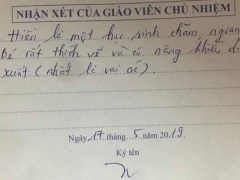 NHẬN XÉT CỦA GIÁO VIÊN CHỦ NHIỆM
Hiền là một học sinh chăm ngoan
Bé rất thích vẽ và có năng khiếu diễn
xuất (nhất là vai ác).
Ngày 17 tháng 5 năm 2019
Ký tên